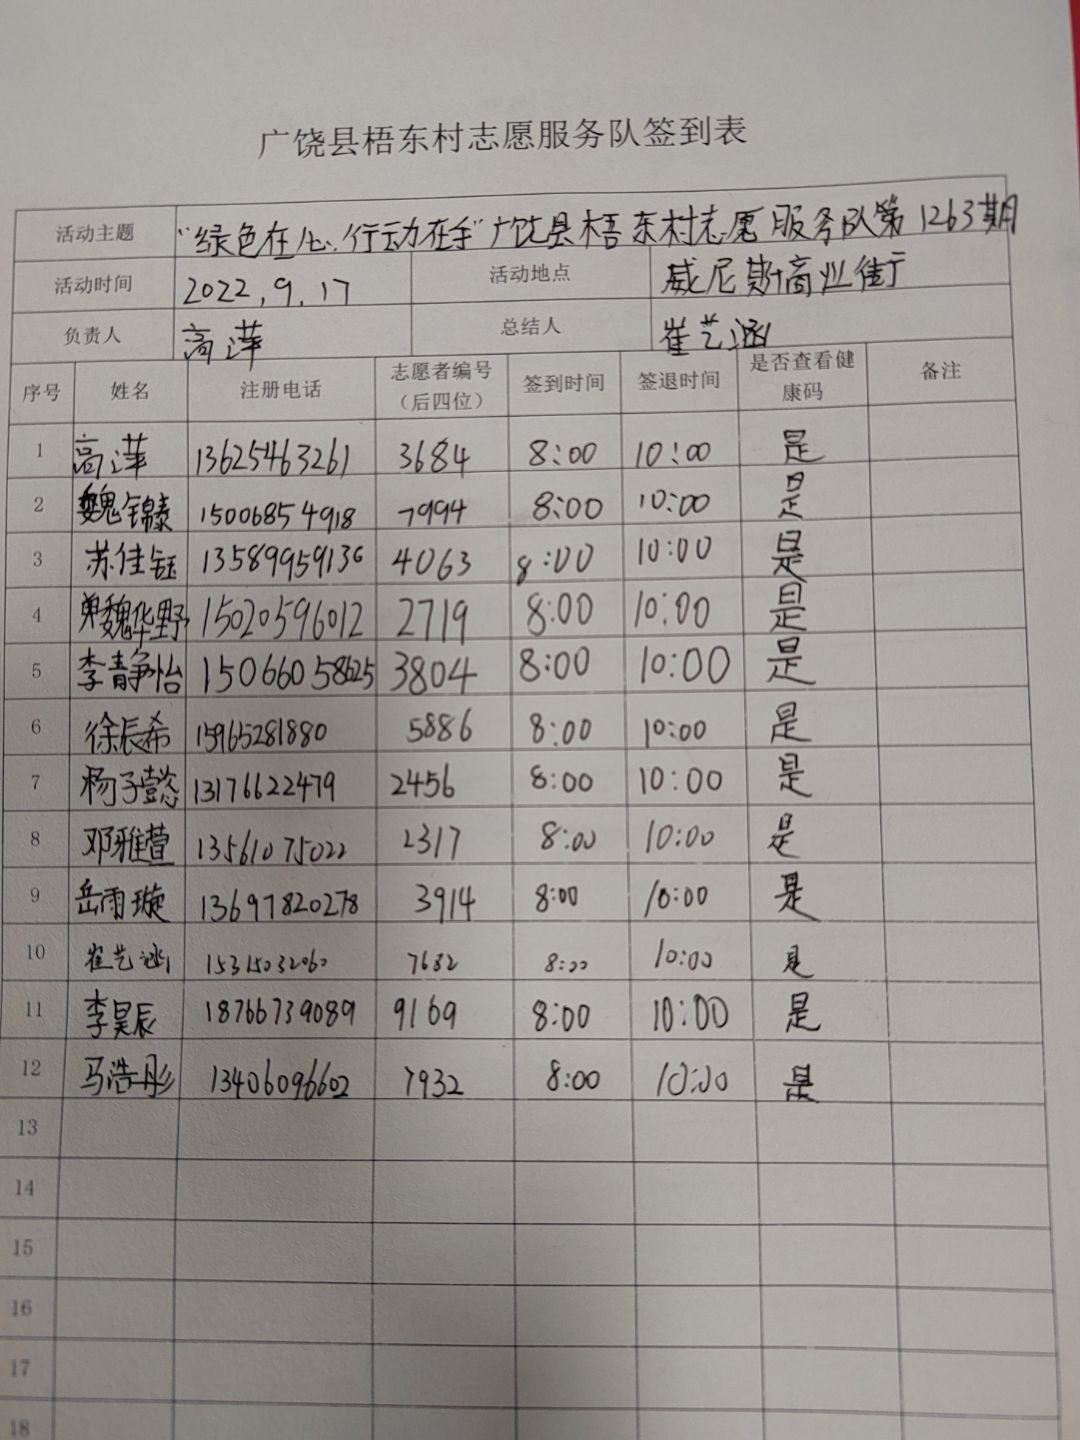 广饶县梧东村志愿服务队签到表
活动主题 “绿色在心,行动在手”广饶县梧东村志愿服务队第1263期
活动时间 2022.9.17 活动地点 威尼斯商业街
负责人 高萍 总结人 崔艺涵
序号 姓名 注册电话 志愿者编号(后四位) 签到时间 签退时间 是否查看健康码 备注
1 高萍 13625463261 3684 8:00 10:00 是
2 魏锦 15006854918 7994 8:00 10:00 是
3 苏佳钰 13589959136 4063 8:00 10:00 是
4 魏华野 15020596012 2719 8:00 10:00 是
5 李静怡 15066058625 3804 8:00 10:00 是
6 徐辰希 15965281880 5886 8:00 10:00 是
7 杨子懿 13176622479 2456 8:00 10:00 是
8 邓雅萱 13561075022 2317 8:00 10:00 是
9 岳雨璇 13697820278 3914 8:00 10:00 是
10 崔艺涵 15315032060 7682 8:00 10:00 是
11 李昊辰 18766739089 9169 8:00 10:00 是
12 马浩彤 13406096602 7932 8:00 10:00 是
13
14
15
16
17
18